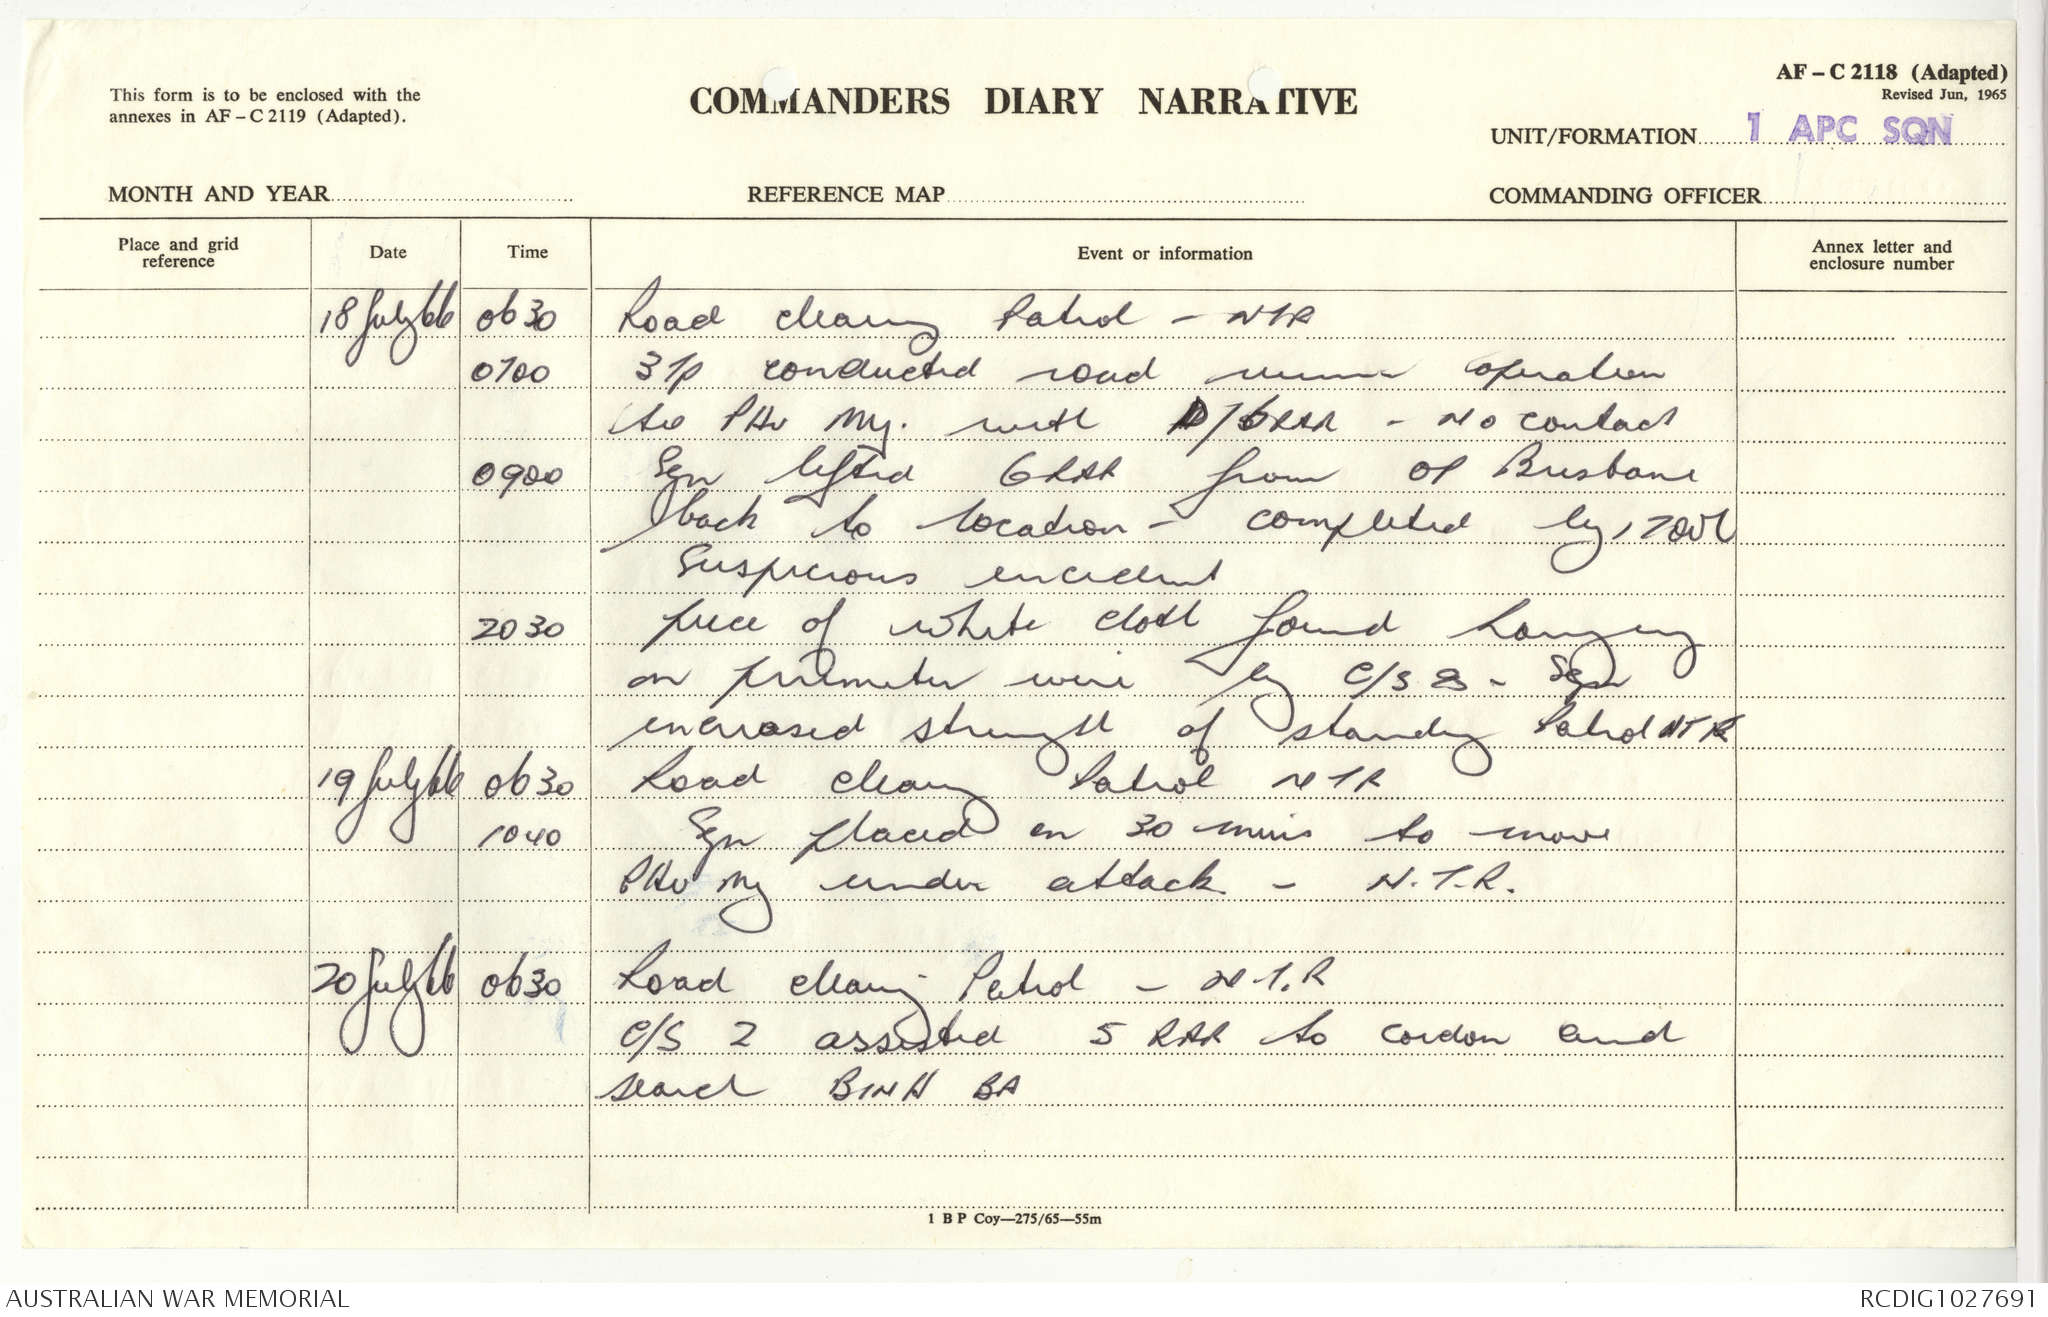 This form is to be enclosed with the
annexes in AF – C 2119 (Adapted).
COMMANDERS DIARY NARRATIVE
AF – C 2118 (Adapted)
Revised Jun, 1965
UNIT/FORMATION 1 APC SQN
MONTH AND YEAR
REFERENCE MAP
COMMANDING OFFICER
Place and grid reference
Date
Time
Event or information
Annex letter and enclosure number
18 July 66 0630 Road clearing Patrol - NTR
0700 3 Tp conducted road runner operation
to PHU My. with D/6RAR - No contact
0900 Sqn lifted 6RAR from OP Brisbane
back to location - completed by 1700
Suspicious incident
2030 piece of white cloth found hanging
on perimeter wire by C/S 8 - Sqn
increased strength of standing Patrol NTR
19 July 66 0630 Road clearing Patrol NTR
1040 Sqn placed on 30 mins to move
PHU My under attack - N.T.R.
20 July 66 0630 Road clearing Patrol - N.T.R
C/S 2 assisted 5 RAR to cordon and
search BINH BA
1 B P Coy—275/65—55m
AUSTRALIAN WAR MEMORIAL
RCDIG1027691